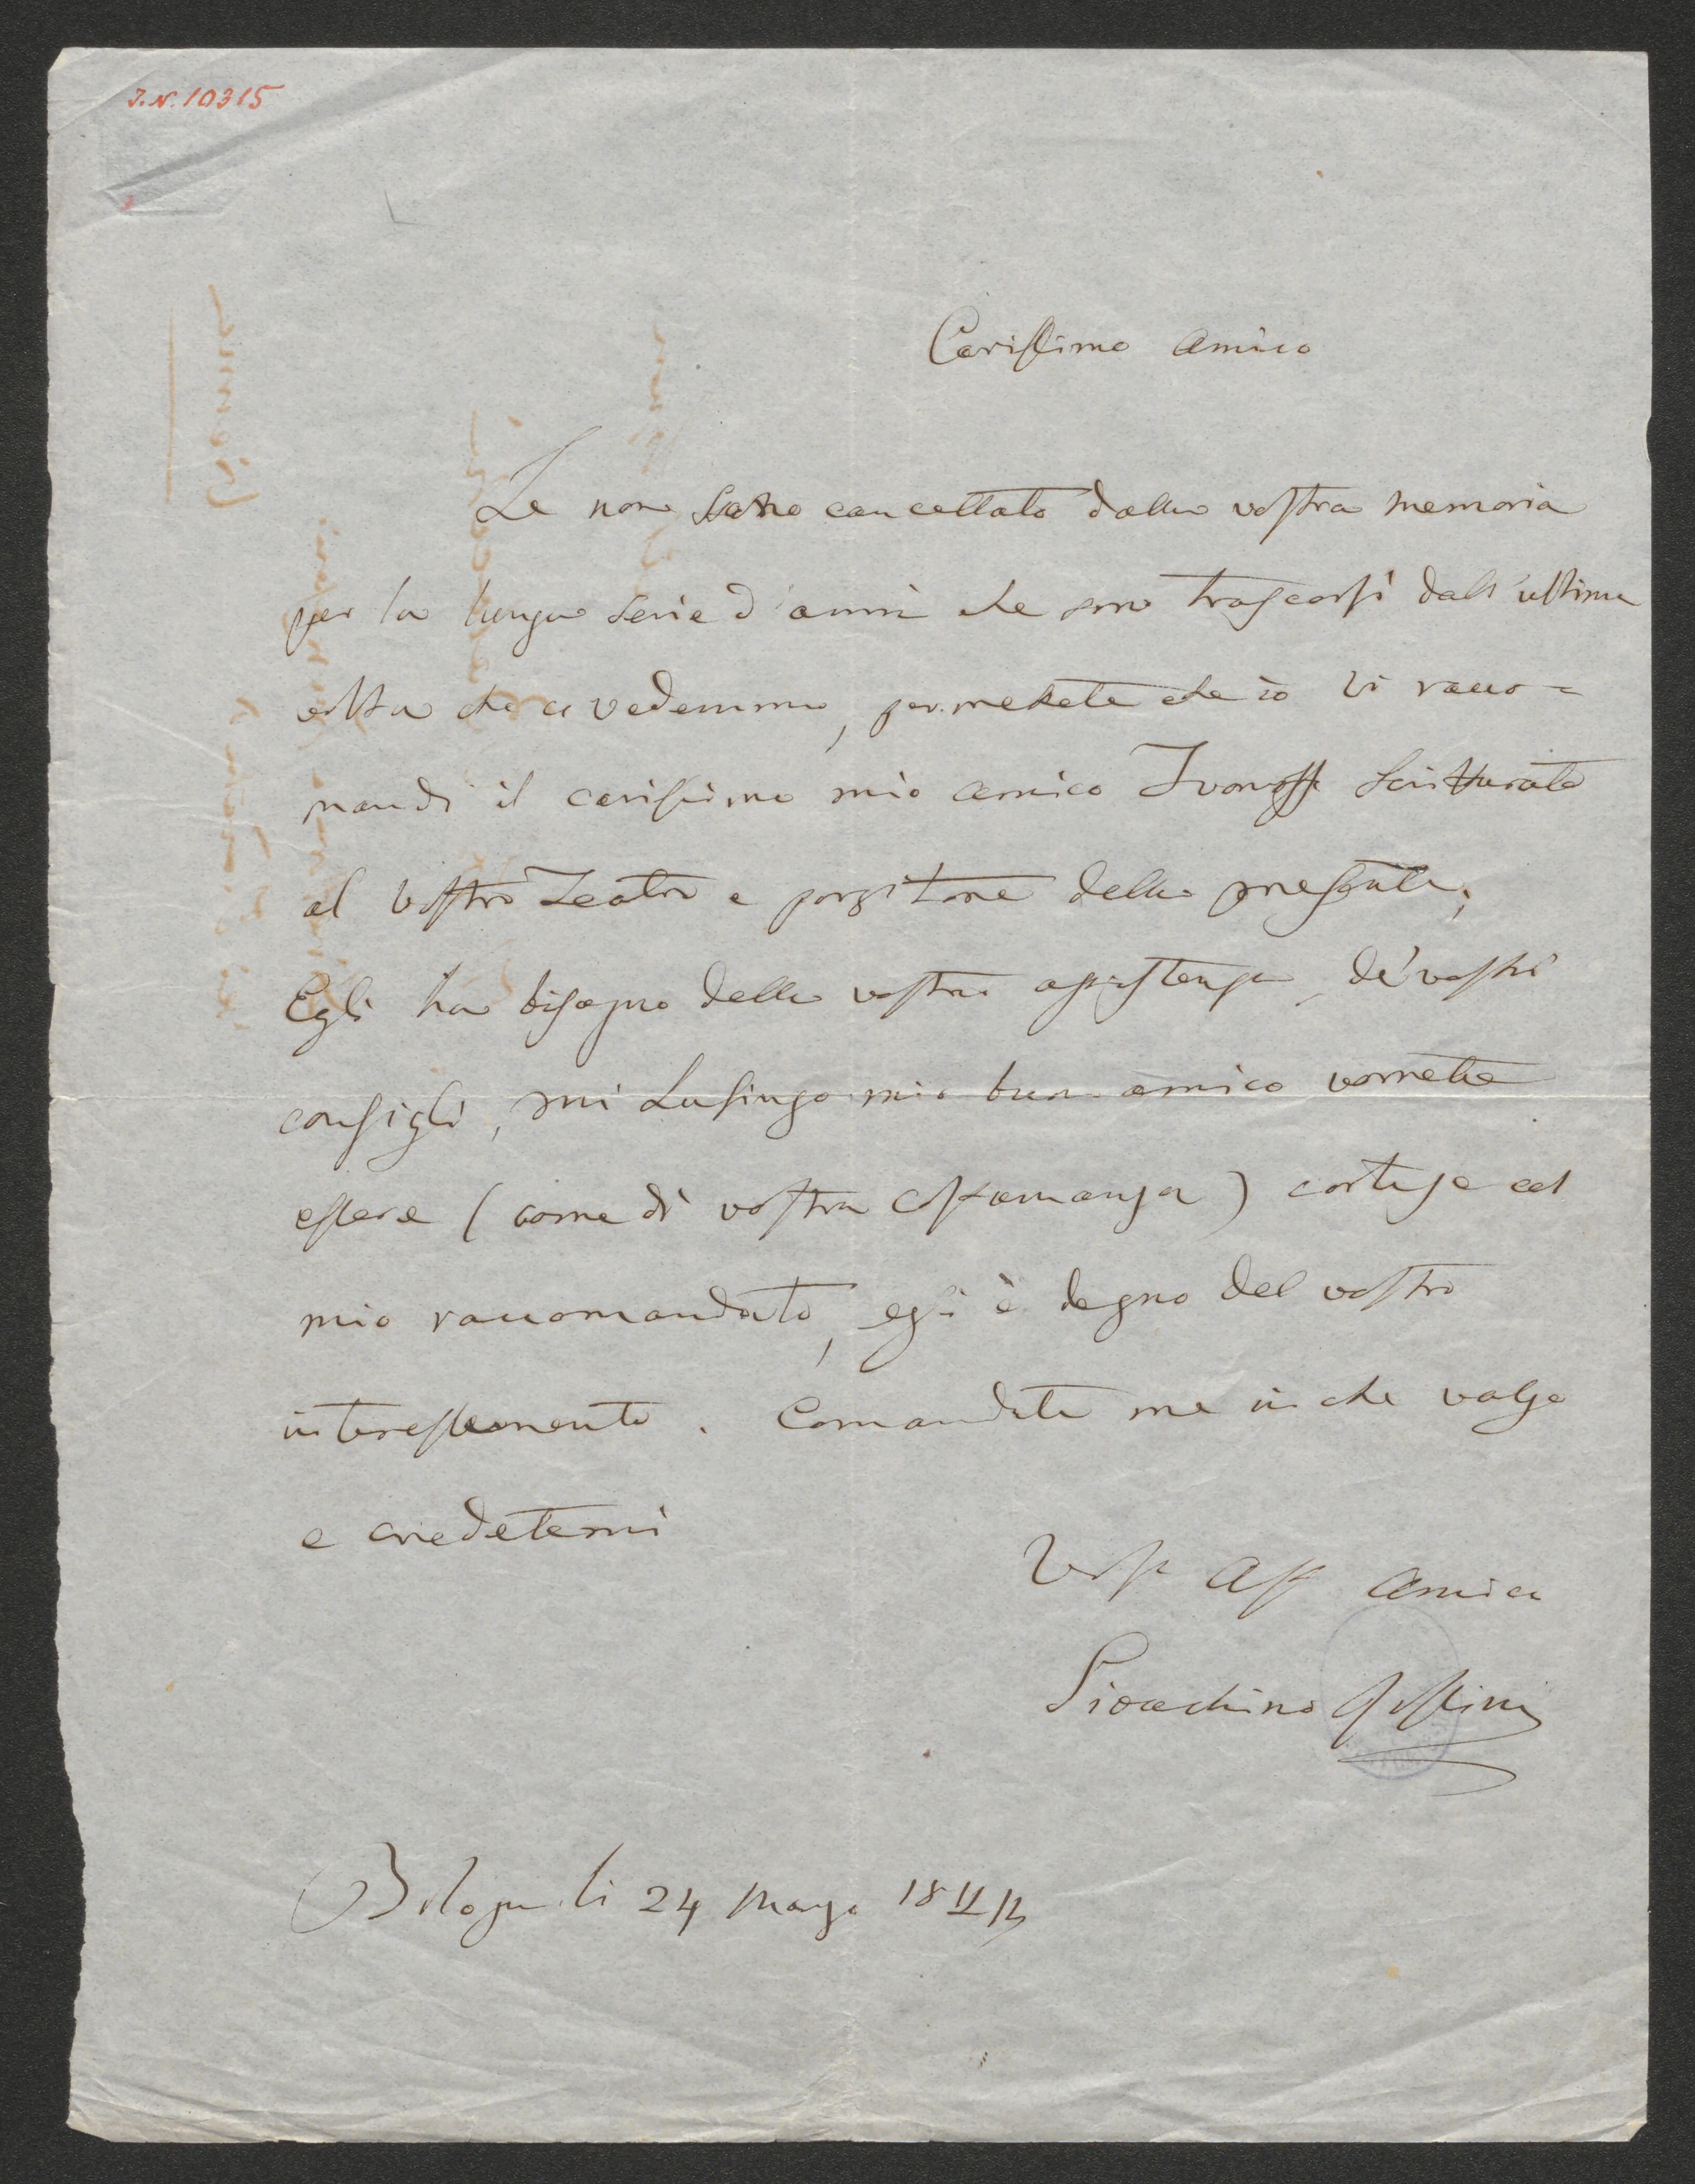 J.N. 10315
Carissimo Amico
Se non sono cancellato dalla vostra memoria
per la lunga serie d'anni che sono trascorsi dall'ultima
volta che ci vedemmo, permettete che io vi racco=
mandi il carissimo mio amico Ivanoff scritturato
al vostro Teatro e porgitore della presente;
Egli ha bisogno della vostra assistenza, de' vostri
consigli, mi Lusingo mio buon amico vorrete
essere (come di vostra costumanza) cortese col
mio raccomandato, egli è degno del vostro
interessamento. Comandate me in che valgo
e credetemi
Vost Aff Amico
Gioachino Rossini
Bologna li 24 Marzo